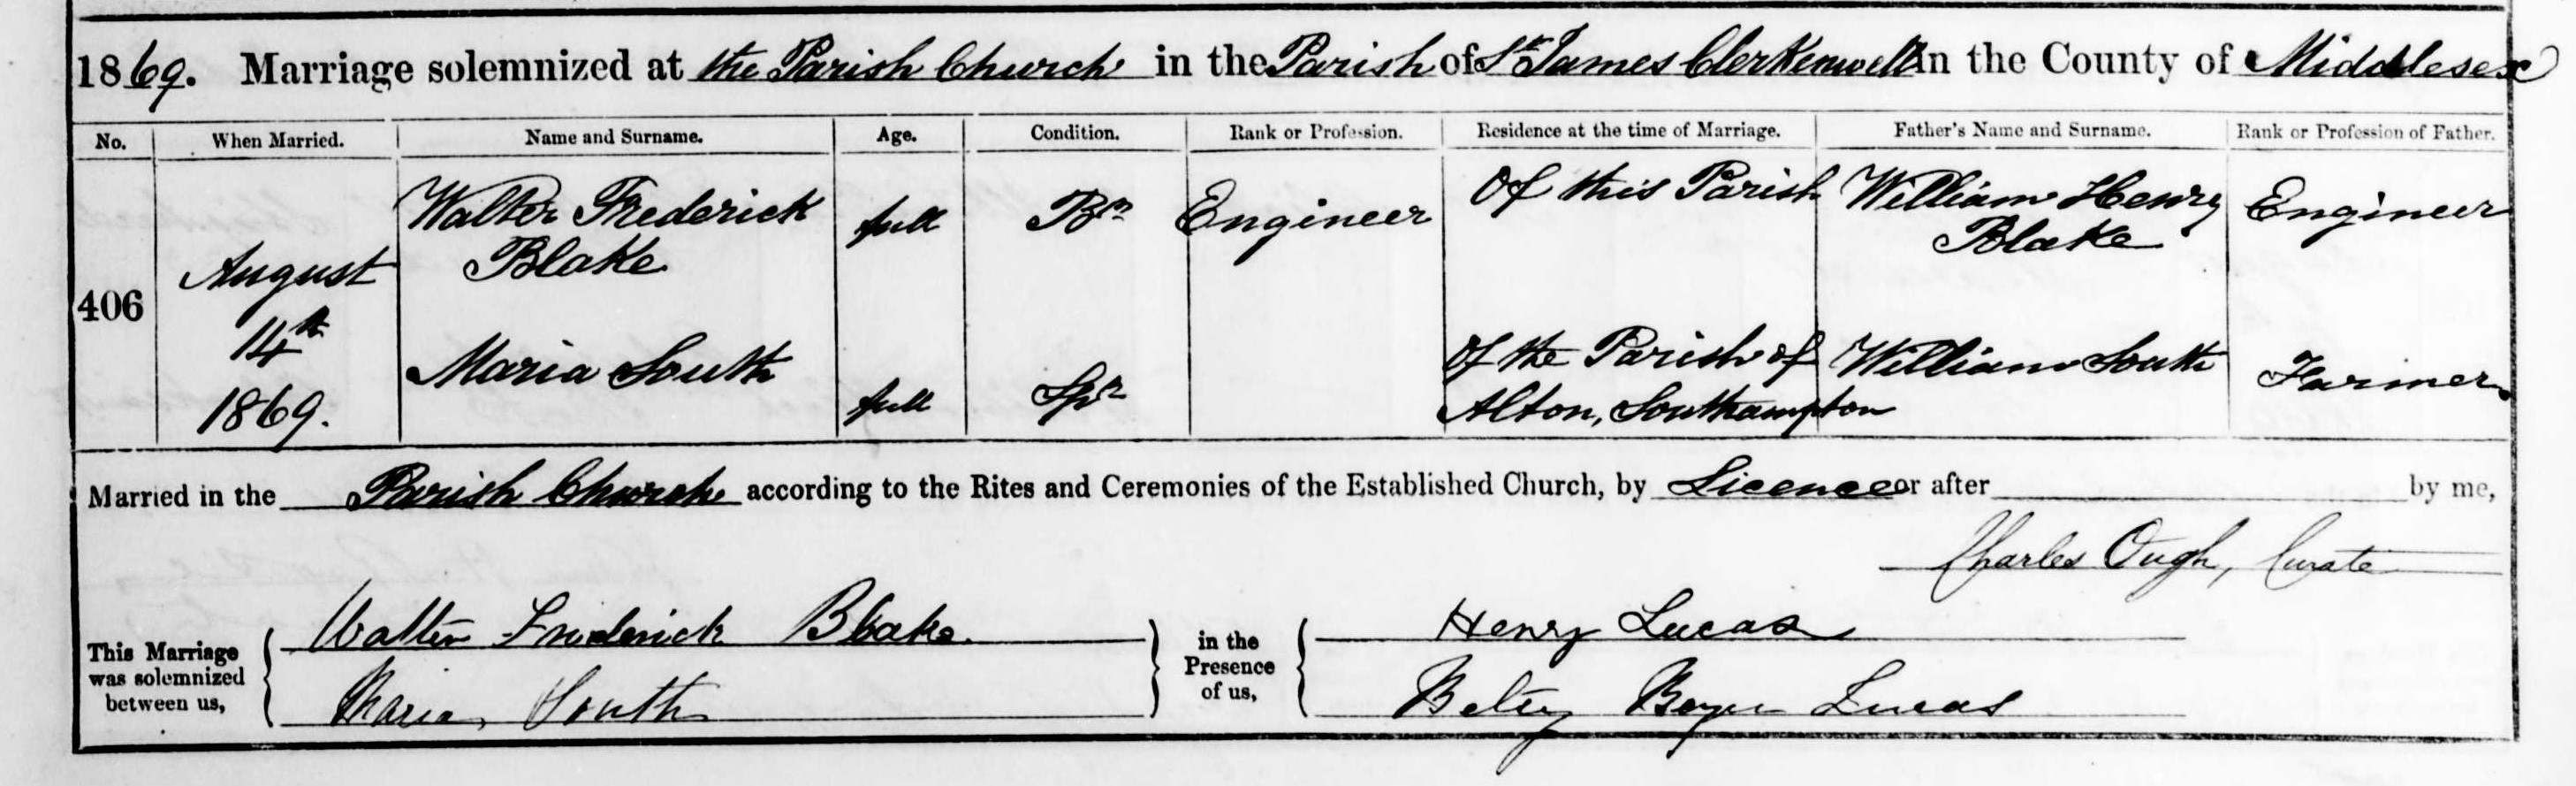 1869. Marriage solemnized at the Parish Church in the Parish of St James Clerkenwell in the County of Middlesex
No. When Married. Name and Surname. Age. Condition. Rank or Profession. Residence at the time of Marriage. Father's Name and Surname. Rank or Profession of Father.
406
August
14th
1869.
Walter Frederick
Blake
full
Br
Engineer
Of this Parish
William Henry
Blake
Engineer
Maria South
full
Spr
Of the Parish of
Alton, Southampton
William South
Farmer
Married in the Parish Church according to the Rites and Ceremonies of the Established Church, by Licence or after by me,
Charles Ough, Curate
This Marriage
was solemnized
between us,
Walter Frederick Blake.
Maria South
in the
Presence
of us,
Henry Lucas
Betsy Lucas